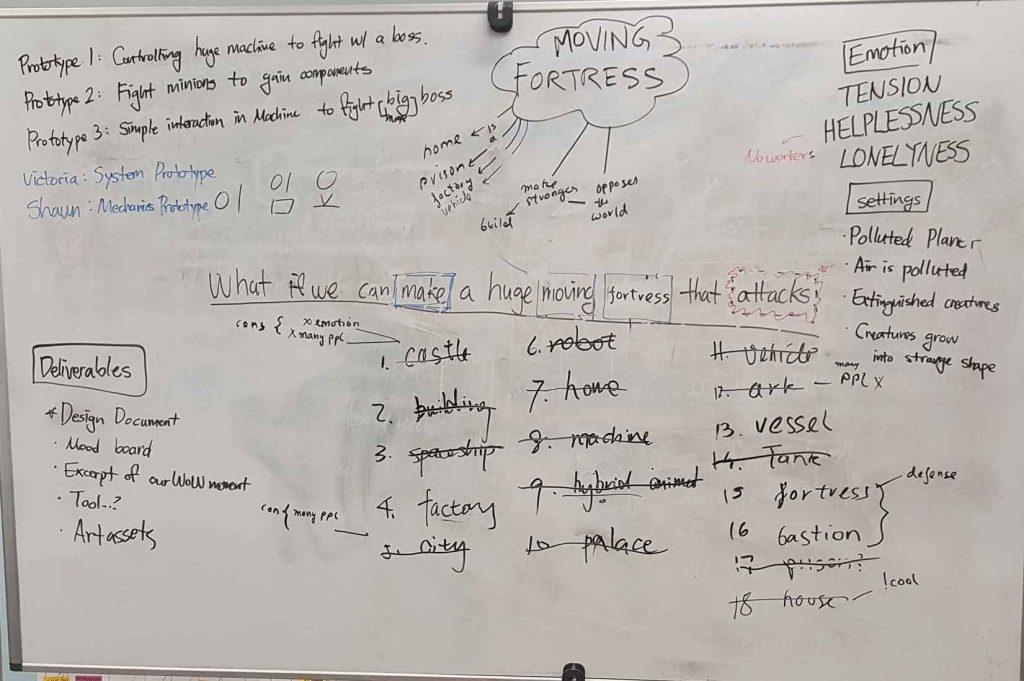 Prototype 1: Controlling huge machine to fight w/ a boss.
Prototype 2: Fight minions to gain components
Prototype 3: Simple interaction in Machine to fight [big] boss
Victoria: System Prototype
Shaun: Mechanics Prototype
MOVING
FORTRESS
is
a
home
prison
factory
vehicle
make
stronger
build
opposes
the
world
No worters
Emotion
TENSION
HELPLESSNESS
LONELYNESS
settings
· Polluted Planet
· Air is polluted
· Extinguished creatures
· Creatures grow
into strange shape
What if we can make a huge moving fortress that attacks.
cons { x emotion
x many ppl
1. castle
2. building
3. spaceship
4. factory
cons { many ppl
5. city
6. robot
7. home
8. machine
9. hybrid animal
10 palace
11. vehicle
12. ark — many ppl x
13. vessel
14. Tank
15 fortress
16 bastion
defense
17 prison?
18 house
!cool
Deliverables
* Design Document
· Mood board
· Excerpt of our WoW moment
· Tool...?
· Art assets